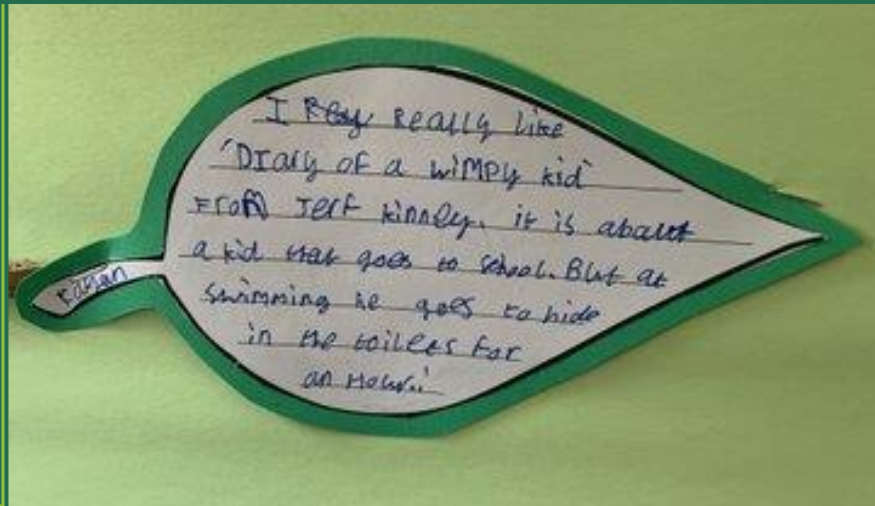 I Really like
"Diary of a wimpy kid"
From Jeff kinney. it is about
a kid that goes to school. But at
swimming he goes to hide
in the toilets for
an Hour.